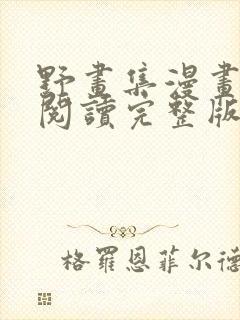 野畫集漫畫
閱讀完整版
格羅恩菲尔德